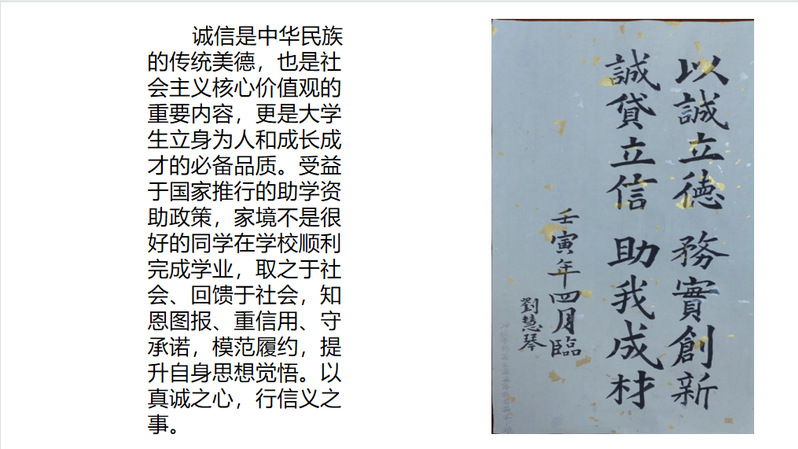 诚信是中华民族
的传统美德，也是社
会主义核心价值观的
重要内容，更是大学
生立身为人和成长成
才的必备品质。受益
于国家推行的助学资
助政策，家境不是很
好的同学在学校顺利
完成学业，取之于社
会、回馈于社会，知
恩图报、重信用、守
承诺，模范履约，提
升自身思想觉悟。以
真诚之心，行信义之
事。
以誠立德 務實創新
誠貸立信 助我成材
壬寅年四月臨
劉慧琴